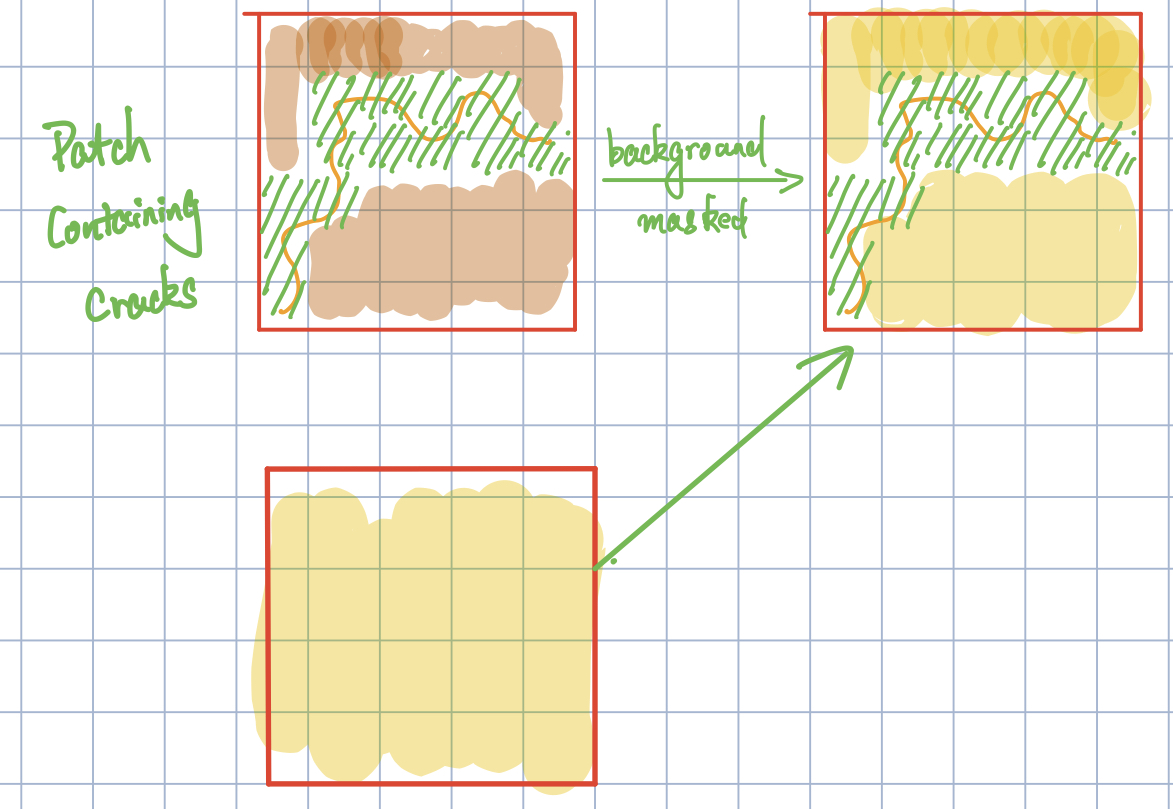 Patch
Containing
Cracks
background
masked